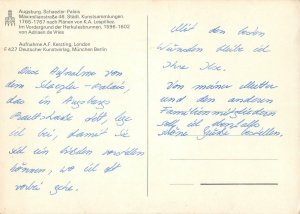 Augsburg, Schaezler-Palais
Maximilianstraße 46. Städt. Kunstsammlungen.
1765-1767 nach Plänen von K.A. Lespilliez.
Im Vordergrund der Herkulesbrunnen, 1596-1602
von Adriaen de Vries
Aufnahme A.F. Kersting, London
F 427 Deutscher Kunstverlag, München Berlin
Diese Aufnahme von
dem Schaezler-Palais,
das in Augsburg
Stadt steht, lege
ich bei, damit Sie
sich ein bisschen vorstellen
können, wo ich oft
vorbei gehe.
Mit den besten
Wünschen bleibe ich
Ihre
Von meiner Mutter
und den anderen
Familienmitgliedern
soll ich
schöne Grüße bestellen.